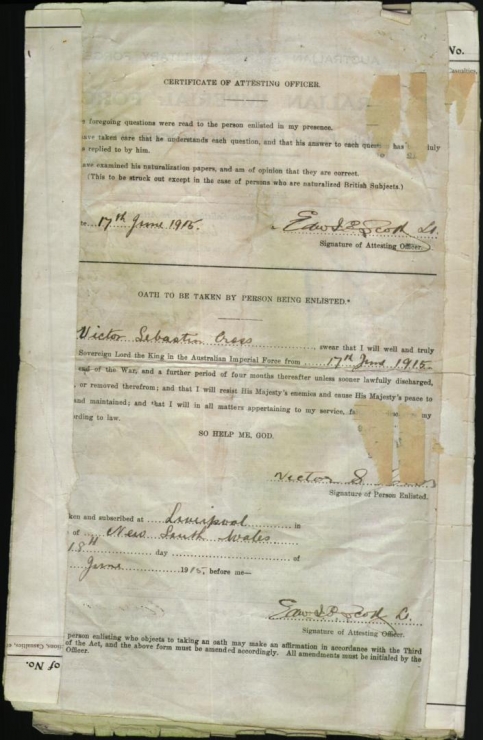 No.
CERTIFICATE OF ATTESTING OFFICER.
foregoing questions were read to the person enlisted in my presence.
taken care that he understands each question, and that his answer to each has duly
replied to by him.
examined his naturalization papers, and am of opinion that they are correct.
(This to be struck out except in the case of persons who are naturalized British Subjects.)
17th June 1915.
Signature of Attesting Officer.
OATH TO BE TAKEN BY PERSON BEING ENLISTED.*
Victor Sebastin Cross swear that I will well and truly
Sovereign Lord the King in the Australian Imperial Force from 17th June 1915
end of the War, and a further period of four months thereafter unless sooner lawfully discharged,
or removed therefrom; and that I will resist His Majesty's enemies and cause His Majesty's peace to
and maintained; and that I will in all matters appertaining to my service, my
to law.
SO HELP ME, GOD.
Victor S.
Signature of Person Enlisted.
and subscribed at Liverpool in
of New South Wales
day of
June 1915. before me—
Signature of Attesting Officer.
person enlisting who objects to taking an oath may make an affirmation in accordance with the Third
of the Act, and the above form must be amended accordingly. All amendments must be initialed by the
Officer.
of No.